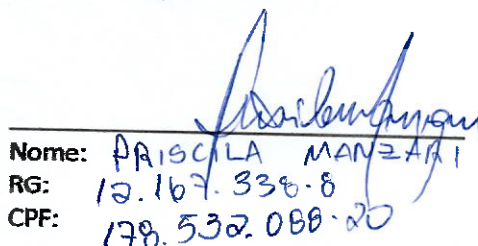 Nome: PRISCILA MANZARI
RG: 12.167.338-8
CPF: 178.532.088-20